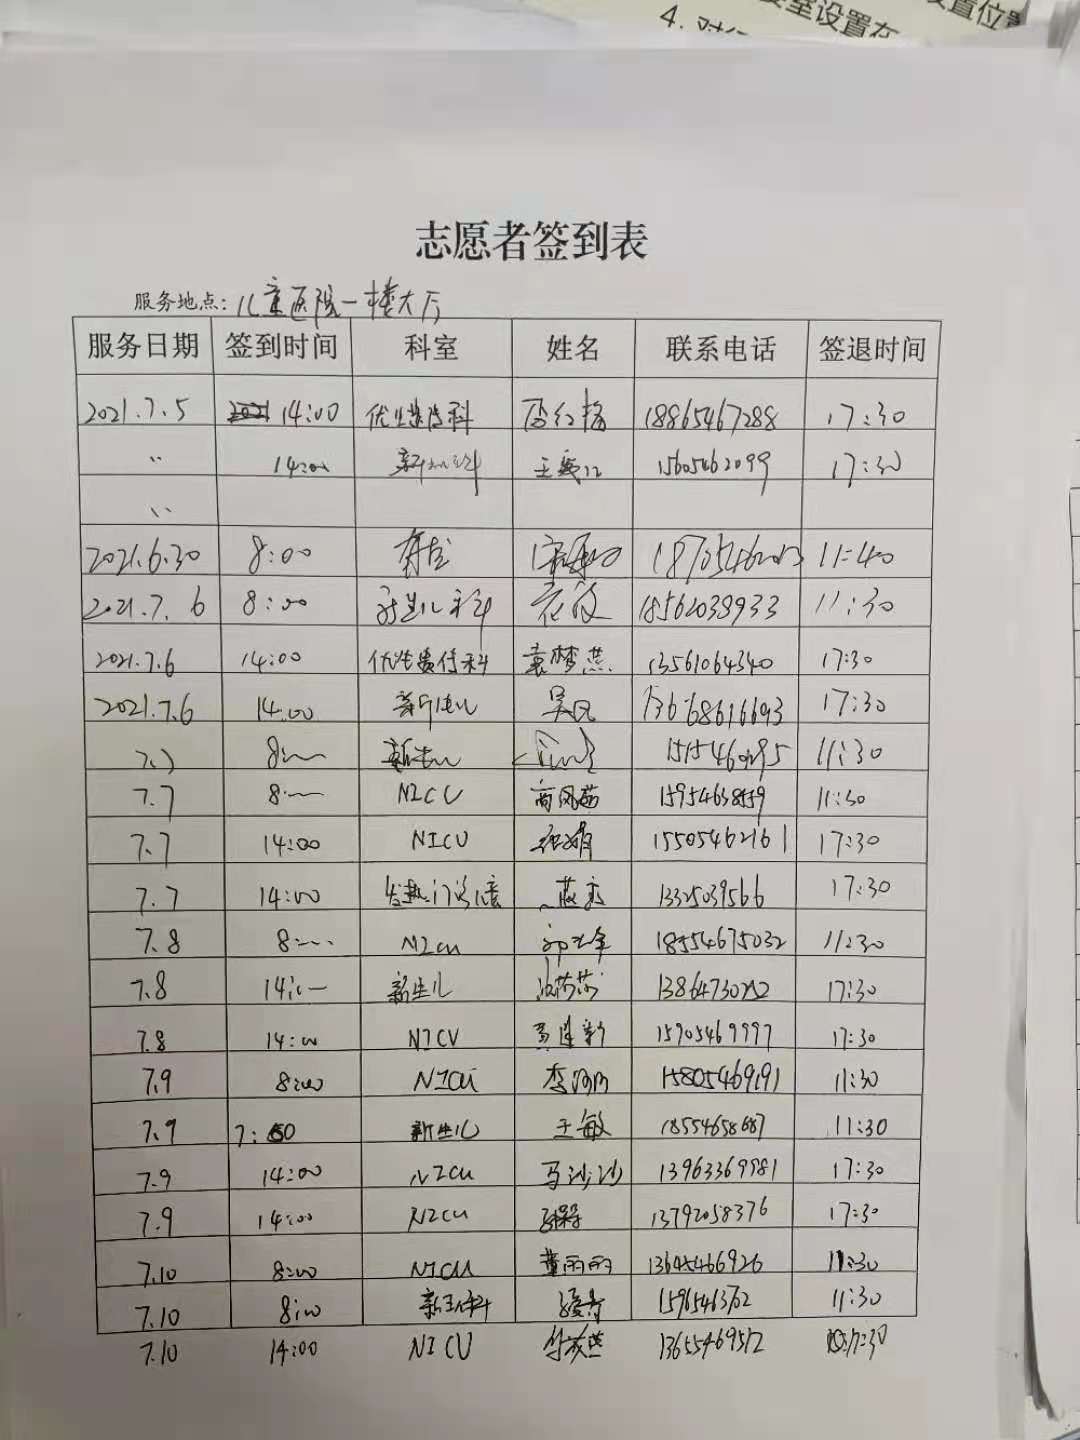 4. 对
室设置在
置位置
志愿者签到表
服务地点: 儿童医院一楼大厅
服务日期 签到时间 科室 姓名 联系电话 签退时间
2021.7.5 14:00 优生遗传科 18865467288 17:30
〃 14:00 新生儿科 15605462099 17:30
〃
2021.6.30 8:00 11:40
2021.7.6 8:00 新生儿科 18562038933 11:30
2021.7.6 14:00 优生遗传科 袁梦燕 13561064340 17:30
2021.7.6 14:00 新生儿 13668616693 17:30
7.7 8:00 新生儿 11:30
7.7 8:00 NICU 商凤茹 15954638559 11:30
7.7 14:00 NICU 张娟 15505462161 17:30
7.7 14:00 发热门诊 13325039566 17:30
7.8 8:00 NICU 18554675032 11:30
7.8 14:00 新生儿 17:30
7.8 14:00 NICU 15905469997 17:30
7.9 8:00 NICU 15805469191 11:30
7.9 7:50 新生儿 王敏 18554658687 11:30
7.9 14:00 NICU 马沙沙 13963369981 17:30
7.9 14:00 NICU 13792058376 17:30
7.10 8:00 NICU 董丽丽 13645466926 11:30
7.10 8:00 新生儿科 15965463702 11:30
7.10 14:00 NICU 13655469512 17:30